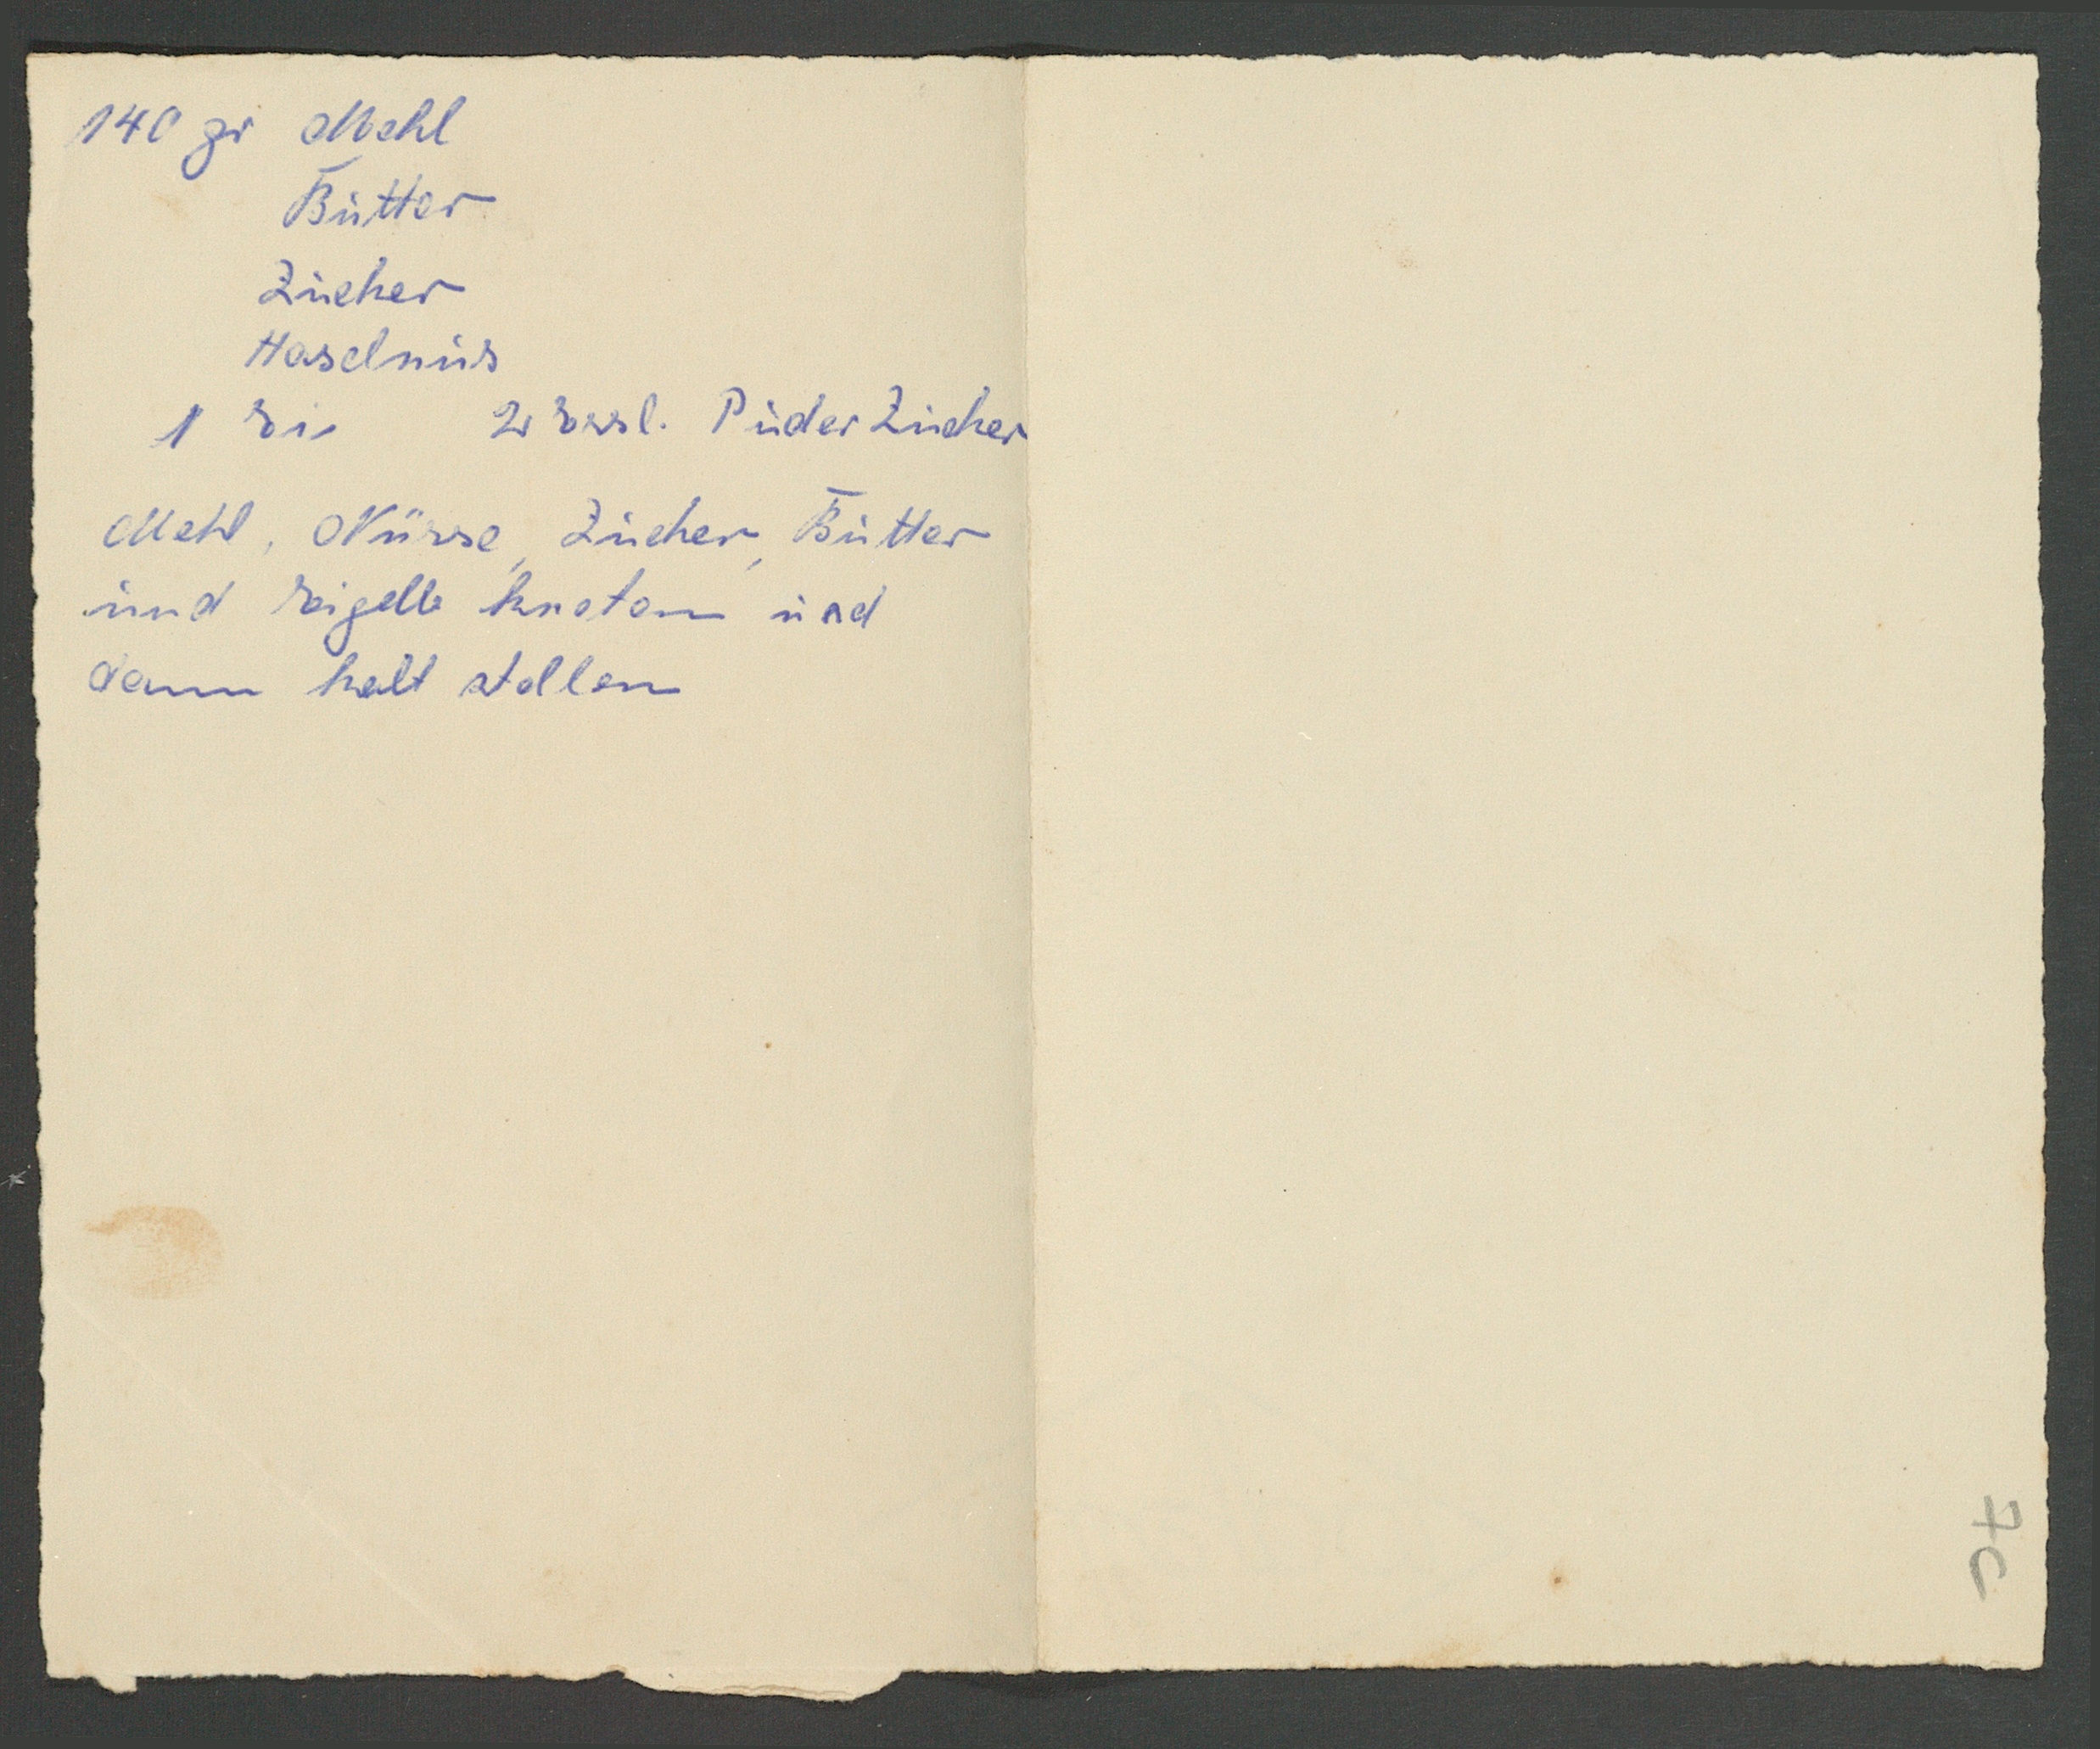 140 gr Mehl
Butter
Zucker
Haselnus
1 Ei 2 Essl. Puder Zucker
Mehl, Nüsse, Zucker, Butter
und Eigelb kneten und
dann kalt stellen
7c